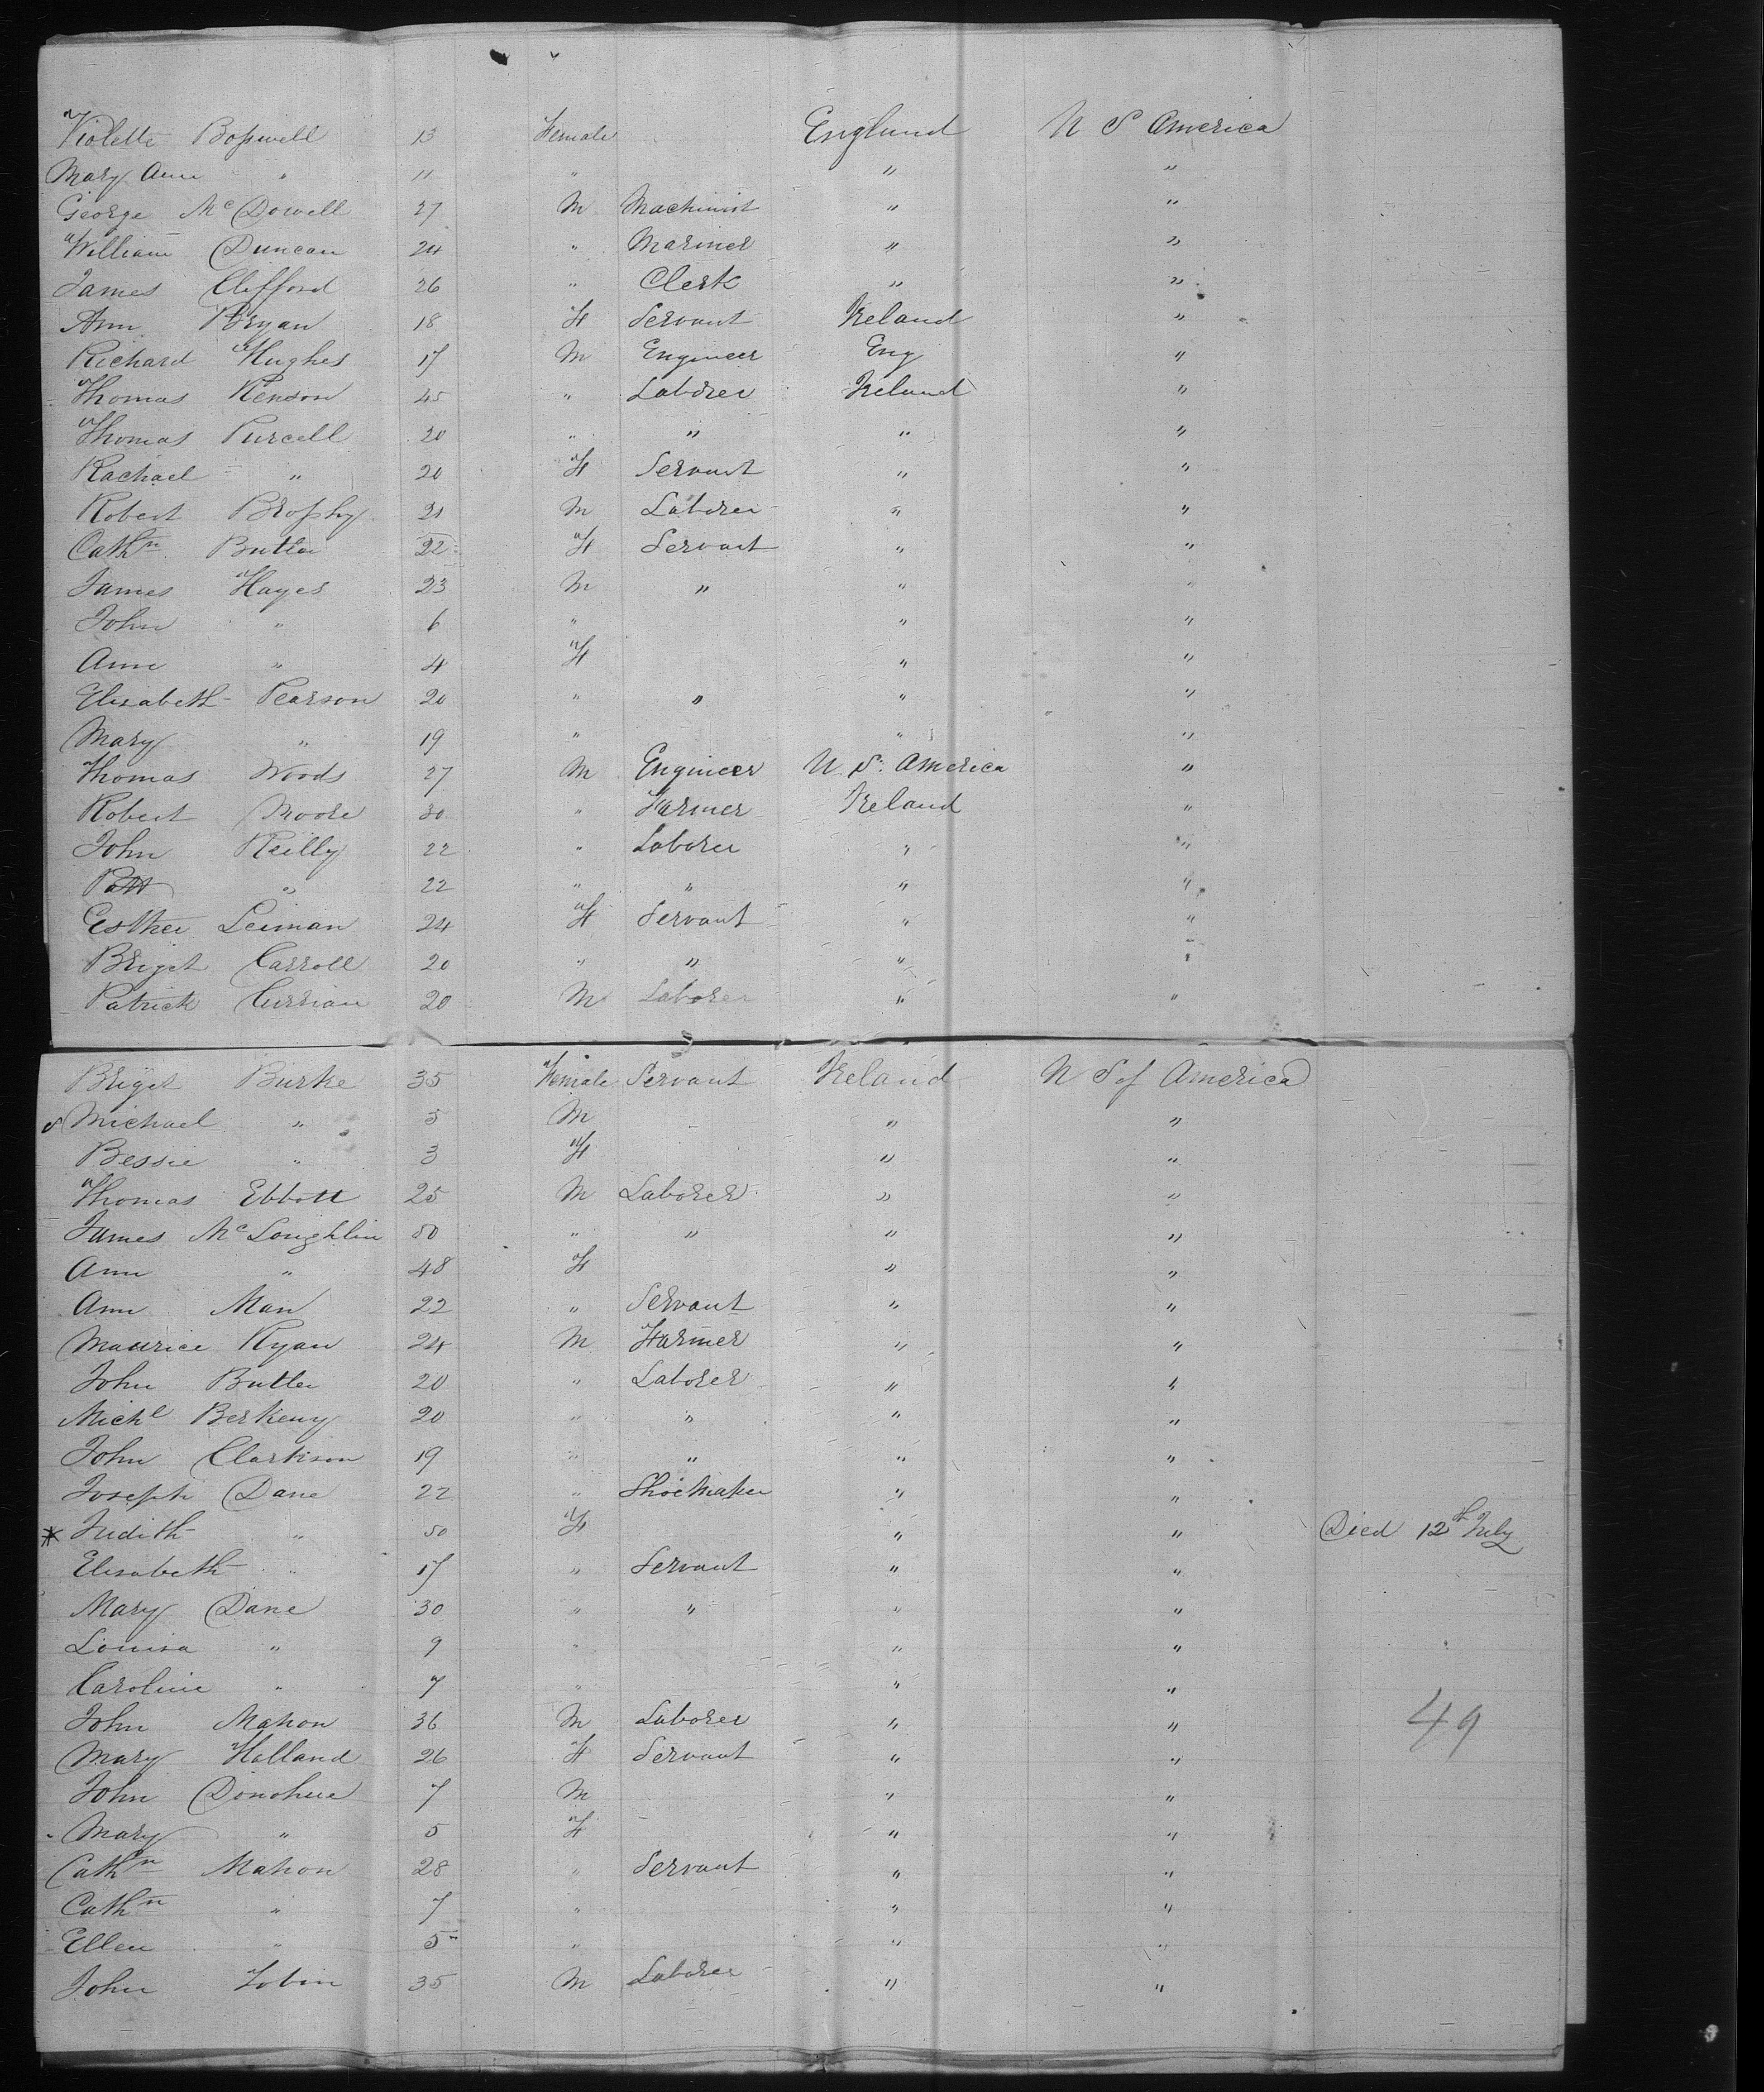 Violette Bosswell 13 Female England U S America
Mary Ann " 11 " " "
George McDowell 27 M Machinist " "
William Duncan 24 " Mariner " "
James Clifford 26 " Clerk " "
Ann Bryan 18 F Servant Ireland "
Richard Hughes 17 M Engineer Eng "
Thomas Kenson 45 " Laborer Ireland "
Thomas Purcell 20 " " " "
Rachael " 20 F Servant " "
Robert Brophy 21 M Laborer " "
Cathn Butler 22 F Servant " "
James Hayes 23 M " " "
John " 6 " " "
Ann " 4 F " "
Elisabeth Pearson 20 " " " "
Mary " 19 " " "
Thomas Woods 27 M Engineer U. S. America "
Robert Moore 30 " Farmer Ireland "
John Reilly 22 " Laborer " "
Patt " 22 " " " "
Esther Leiman 24 F Servant " "
Briget Carroll 20 " " " "
Patrick Currian 20 M Laborer " "
Briget Burke 35 Female Servant Ireland U S of America
Michael " 5 M " "
Bessie " 3 F " "
Thomas Ebbott 25 M Laborer " "
James McLoughlin 50 " " " "
Ann " 48 F " "
Ann Man 22 " Servant " "
Maurice Ryan 24 M Farmer " "
John Butler 20 " Laborer " "
Michl Berkeny 20 " " " "
John Clarkson 19 " " " "
Joseph Dane 22 " Shoemaker " "
* Judith " 50 F " " Died 12th July
Elisabeth " 17 " Servant " "
Mary Dane 30 " " " "
Louisa " 9 " " "
Caroline " 7 " " "
John Mahon 36 M Laborer " " 49
Mary Holland 26 F Servant " "
John Donohue 7 M " "
Mary " 5 F " "
Cathn Mahon 28 " Servant " "
Cathn " 7 " " "
Ellen " 5 " " "
John Tobin 35 M Laborer " "